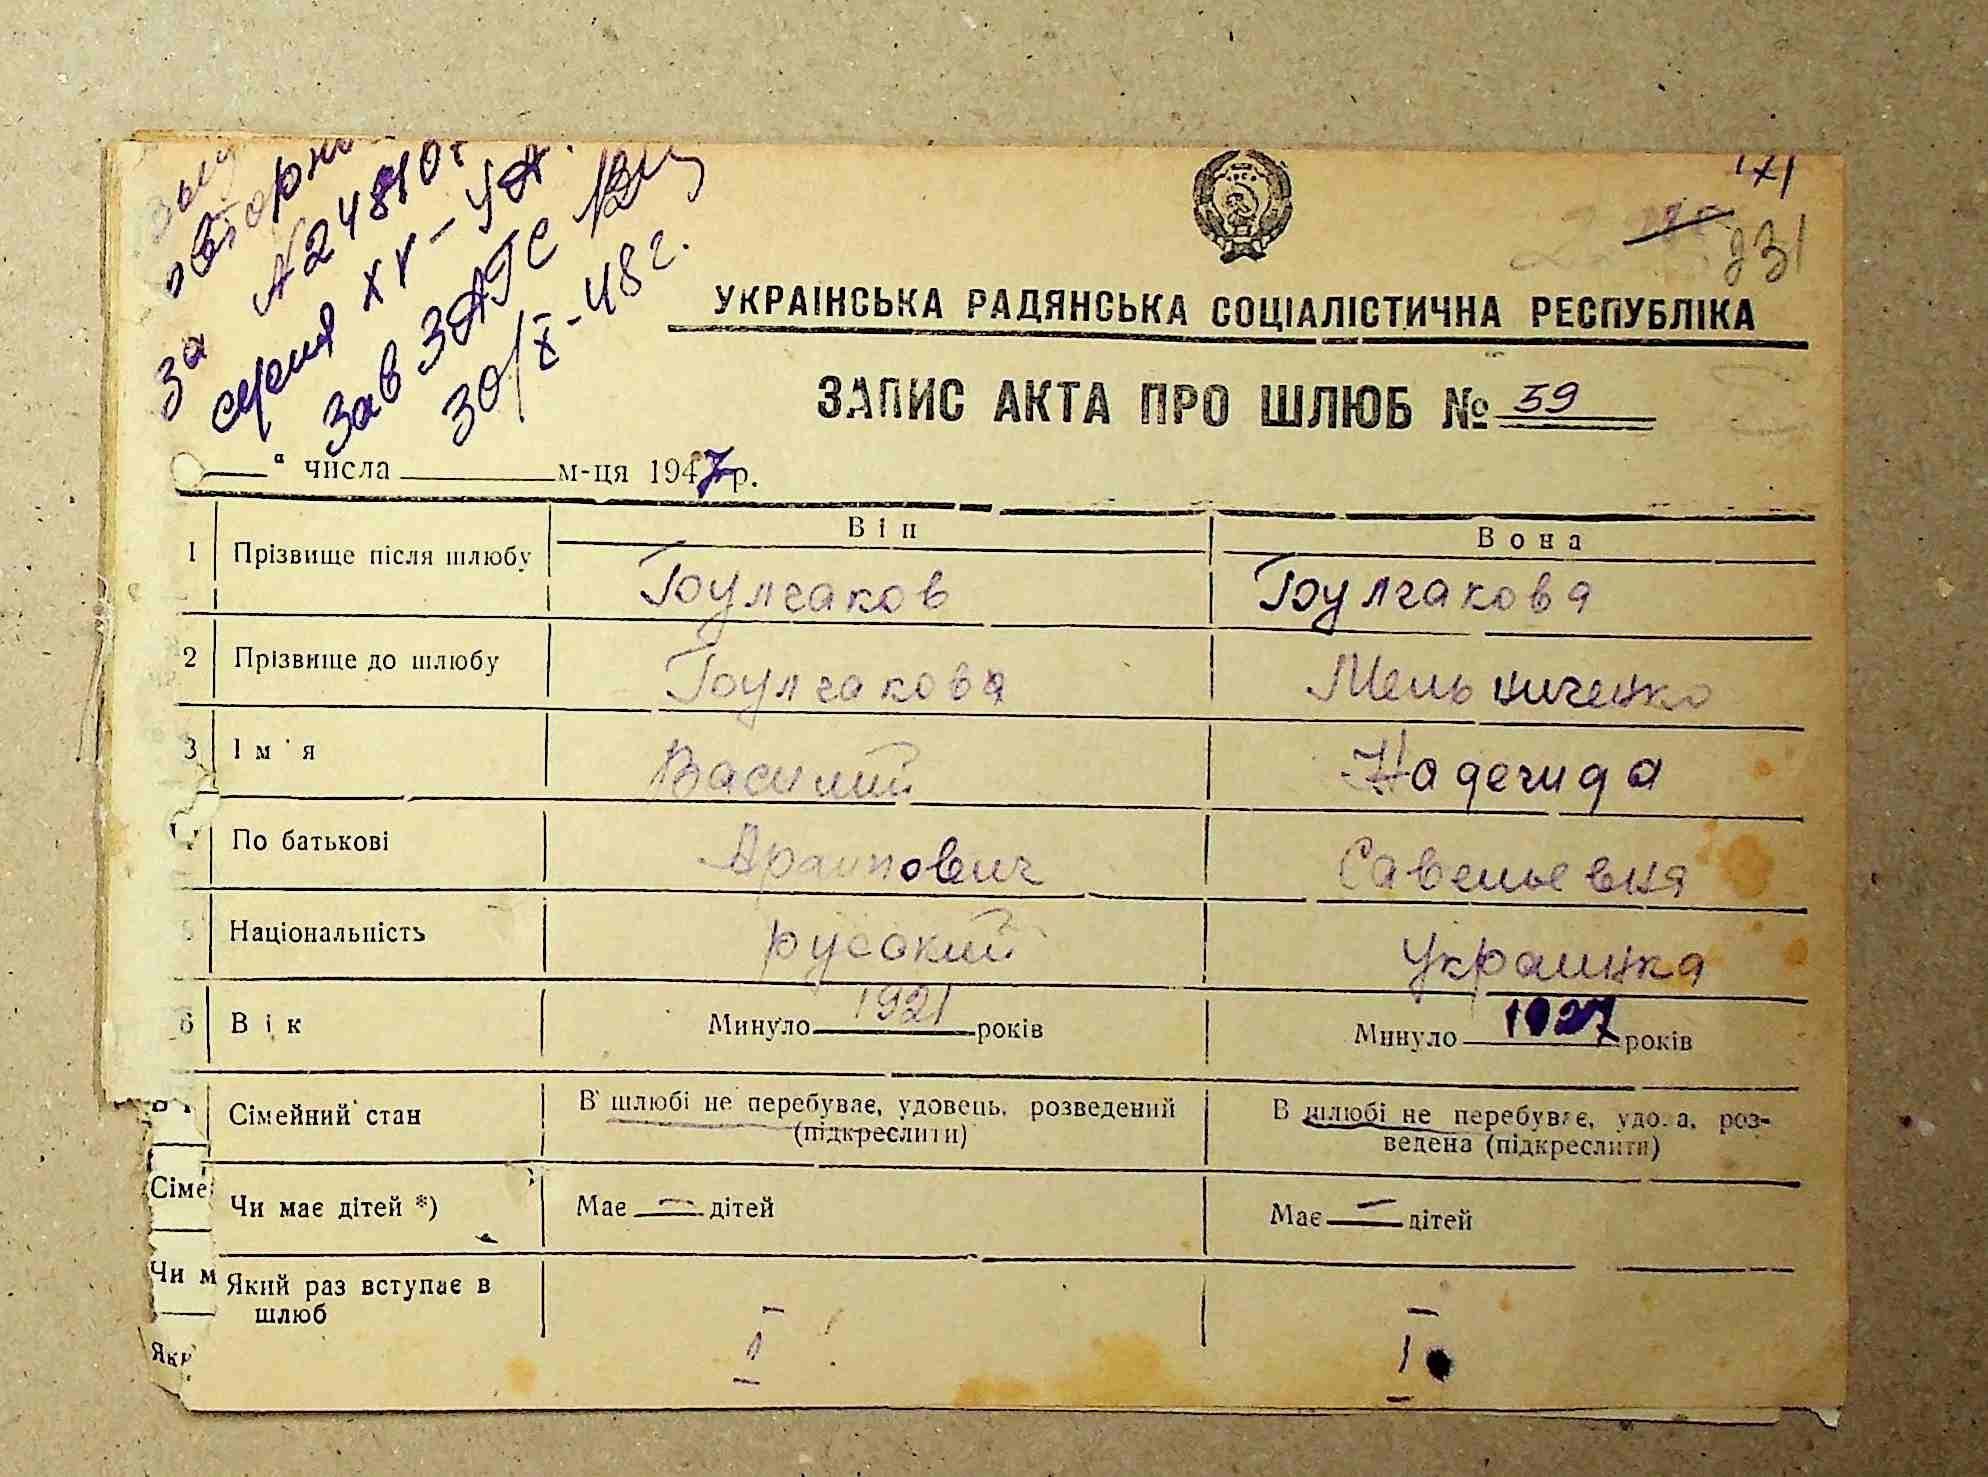 за N 248107
серия XV-УА.
Зав ЗАГС
30/X-48 г.
231
УКРАІНСЬКА РАДЯНСЬКА СОЦІАЛІСТИЧНА РЕСПУБЛІКА
ЗАПИС АКТА ПРО ШЛЮБ № 59
" числа м-ця 1947 р.
Він Вона
1 Прізвище після шлюбу Булгаков Булгакова
2 Прізвище до шлюбу Булгакова Мельниченко
3 Ім'я Василий
По батькові Савельевня
5 Національність русский Украинка
6 Вік Минуло 1921 років Минуло 1927 років
Сімейний стан В шлюбі не перебуває, удовець, розведений (підкреслити) В шлюбі не перебуває, удова, роз-
ведена (підкреслити)
Сіме
Чи має дітей *) Має — дітей Має — дітей
Чи м
Який раз вступає в
шлюб I I
Яки